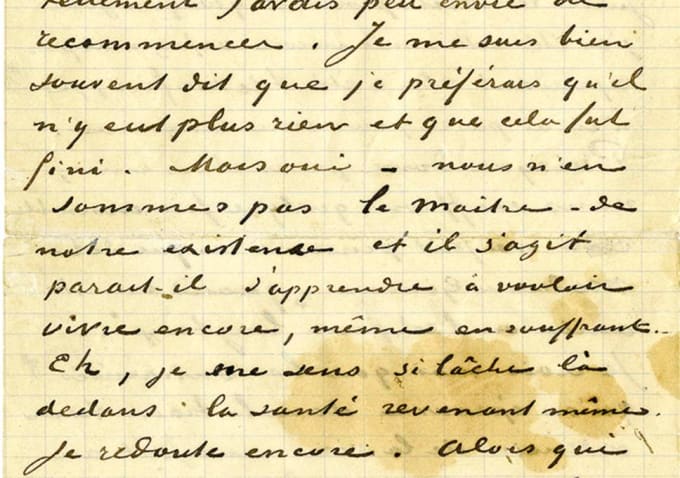 j'avais peu envie de
recommencer. Je me suis bien
souvent dit que je préférais qu'il
n'y eut plus rien et que cela fut
fini. Mais oui - nous n'en
sommes pas le maître - de
notre existence et il s'agit
parait-il s'apprendre à vouloir
vivre encore, même en souffrant..
Eh, je me sens si lâche là
dedans la santé revenant même.
Je redoute encore. Alors qui